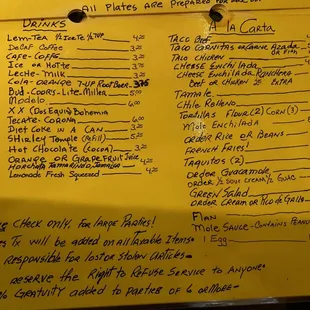 All Plates are Prepared
Drinks
Lem-Tea ½ Ice Tea ½ 7up 4.25
Decaf Coffee 3.25
Cafe-Coffee 3.25
Ice or Hot Tea
Leche-Milk 3.25
Cola-Orange 7-up Root Beer 3.75
Bud-Coors-Lite-Miller 5.00
Modelo 6.00
X X (Dos Equis) Bohemia
Tecate-Corona 6.00
Diet Coke in a Can 3.25
Shirley Temple (Refill) 5.25
Hot Chocolate (Cocoa) 4.25
Orange or Grapefruit Juice 4.25
Horchata Tamarindo, Jamaica 4.25
Lemonade Fresh Squeezed 4.25
A la Carta
Taco Beef
Taco Carnitas or Carne Asada
or Fish
Taco Chicken
Cheese Enchilada
Cheese Enchilada Ranchera
Beef or Chicken Extra
Tamale
Chile Relleno
Tortillas Flour (2) Corn (3)
Mole Enchilada
Order Rice or Beans
French Fries
Taquitos (2)
Order Guacamole
Order ½ Sour Cream ½ Guac
Green Salad
Order Cream or Pico de Gallo
Flan
Mole Sauce-Contains
1 Egg
Check Only, for Large Parties!
Tx will be added on All Taxable Items
Responsible for lost or stolen articles-
reserve the Right to Refuse Service to Anyone-
% Gratuity added to parties of 6 or more-